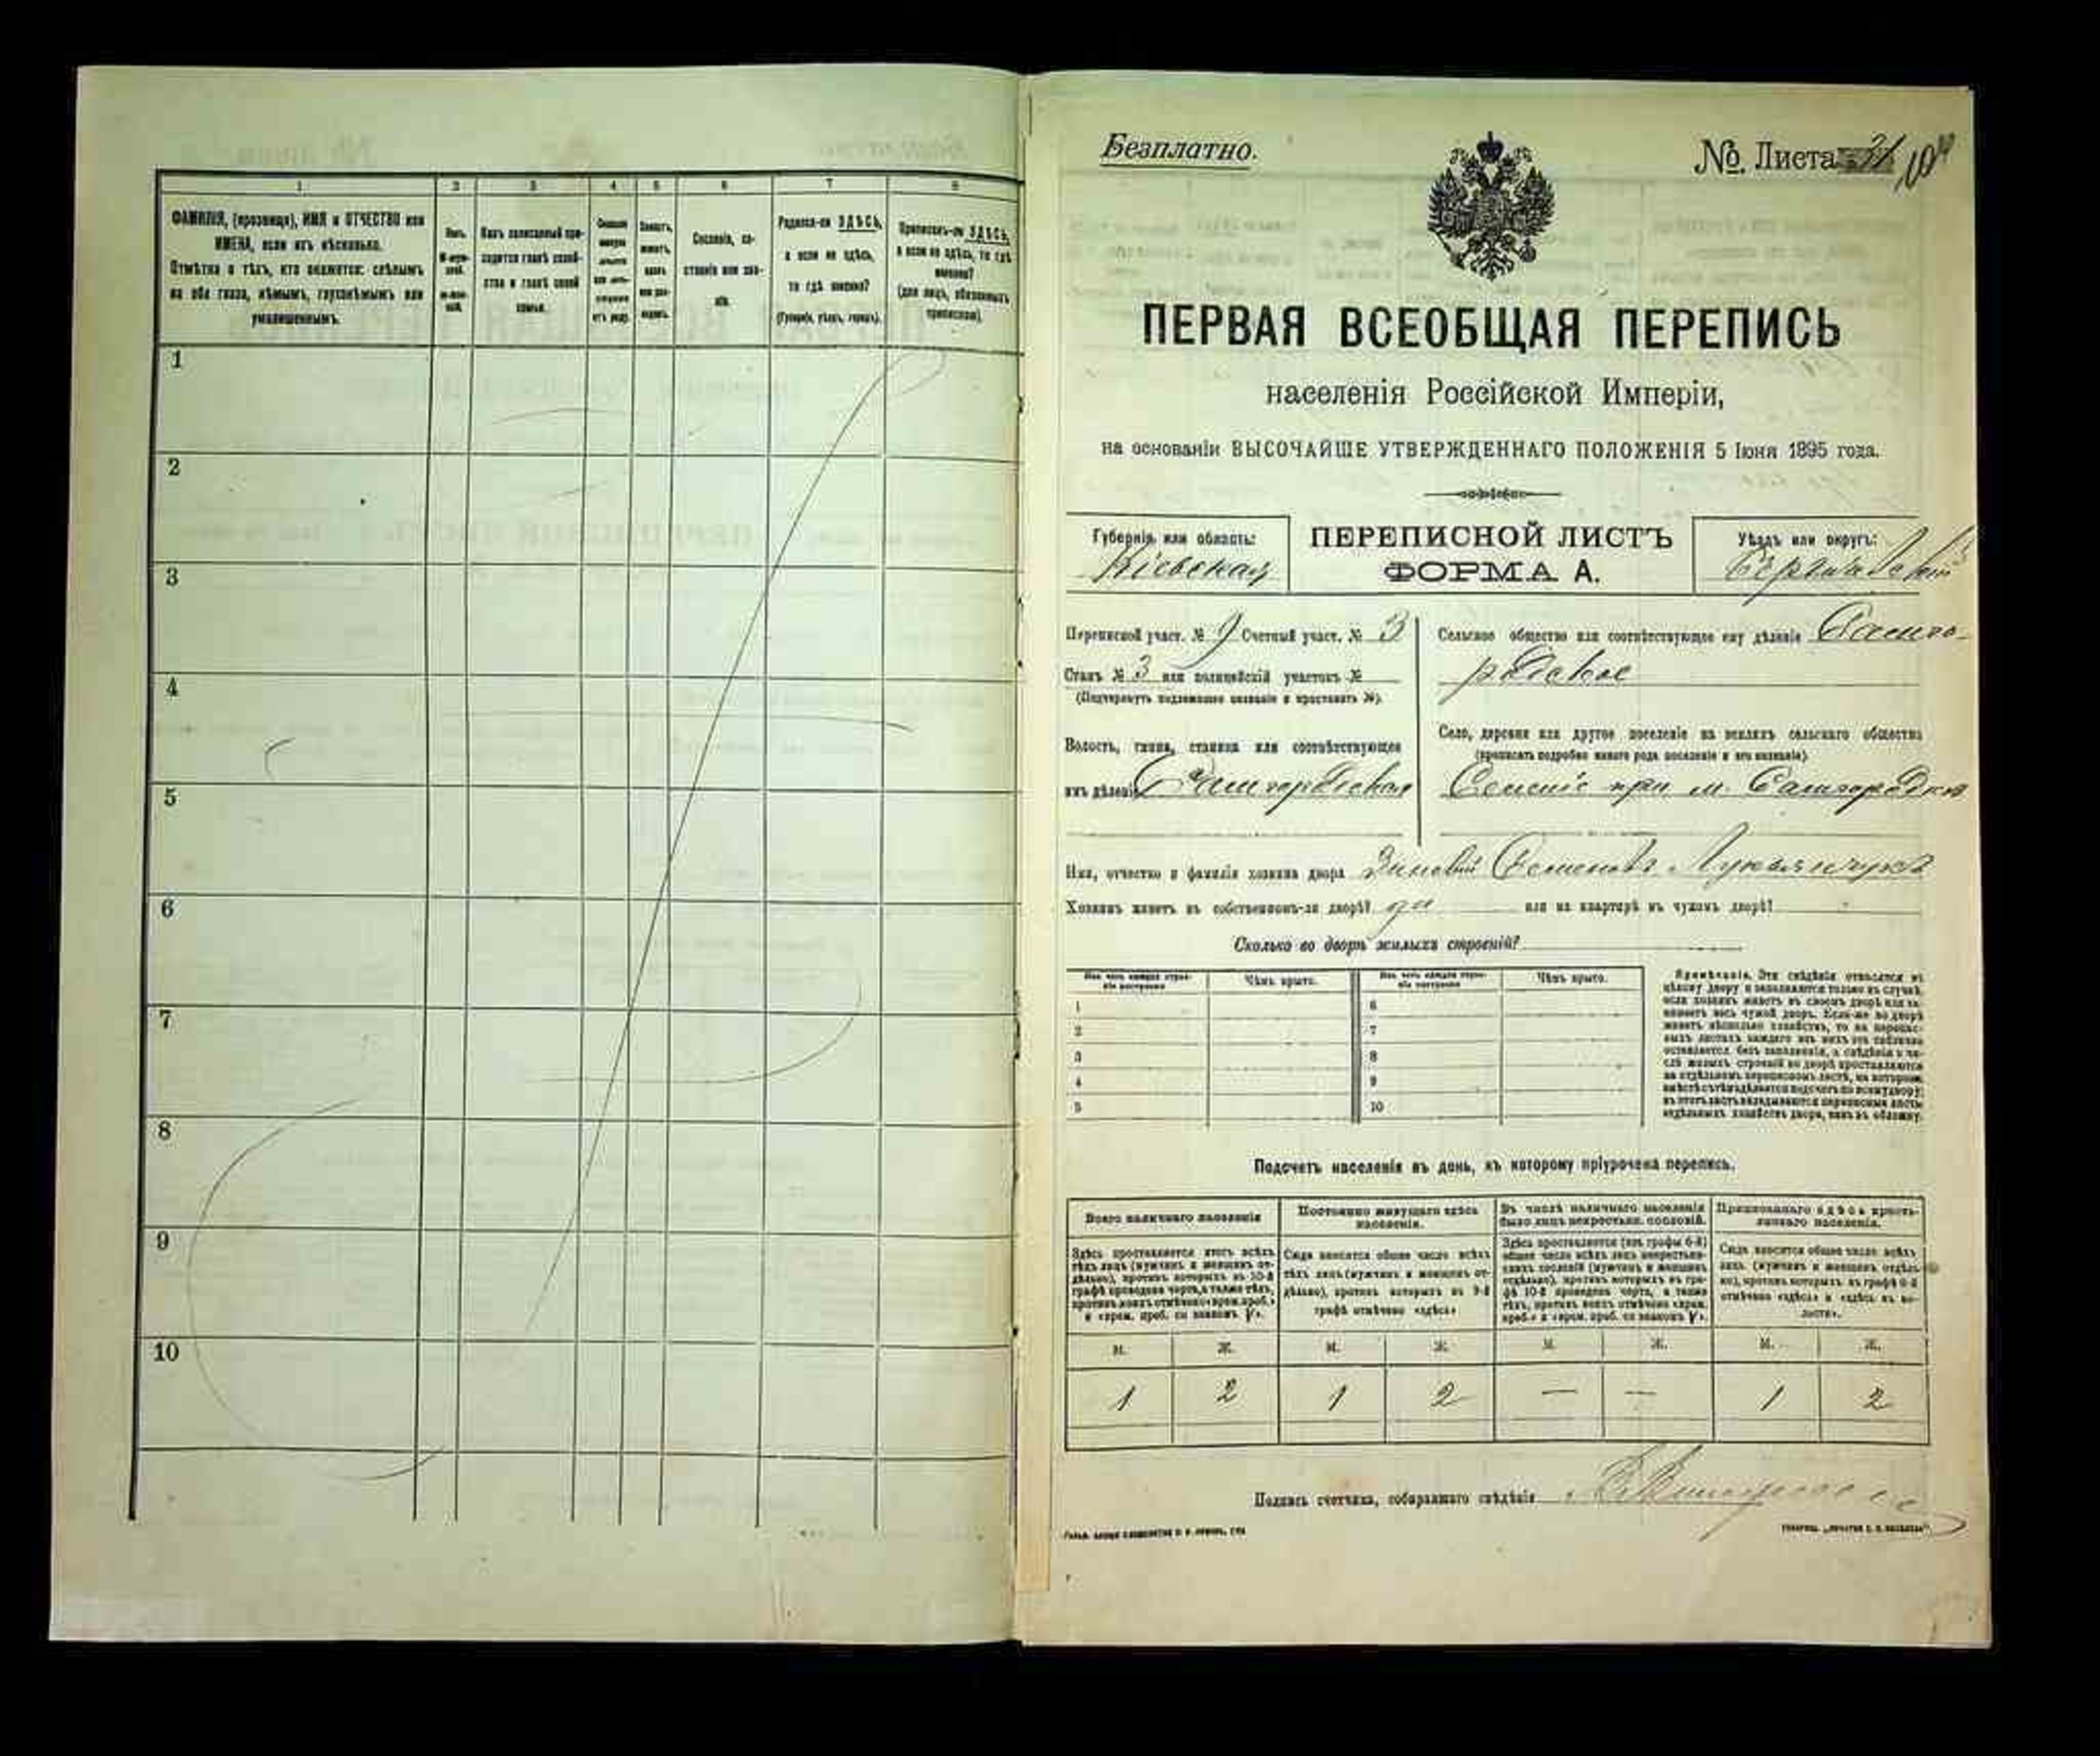 1 2 3 4 5 6 7 8
ФАМИЛІЯ, (прозвище), ИМЯ и ОТЧЕСТВО или
ИМЕНА, если ихъ нѣсколько.
Отмѣтка о тѣхъ, кто окажется: слѣпымъ
на оба глаза, нѣмымъ, глухонѣмымъ или
умалишеннымъ.
Полъ.
Какъ записанный при-
ходится главѣ хозяй-
ства и главѣ своей
семьи.
Сословіе, со-
стояніе или зва-
ніе.
Родился-ли ЗДѢСЬ,
а если не здѣсь,
то гдѣ именно?
(Губернія, уѣздъ, городъ).
Приписанъ-ли ЗДѢСЬ,
а если не здѣсь, то гдѣ
именно?
(для лицъ, обязанныхъ
припискою).
1
2
3
4
5
6
7
8
9
10
Безплатно.
№ Листа
ПЕРВАЯ ВСЕОБЩАЯ ПЕРЕПИСЬ
населенія Россійской Имперіи,
на основаніи ВЫСОЧАЙШЕ УТВЕРЖДЕННАГО ПОЛОЖЕНІЯ 5 Іюня 1895 года.
Губернія или область:
Кіевская
ПЕРЕПИСНОЙ ЛИСТЪ
ФОРМА А.
Уѣздъ или округъ:
Переписной участ. № 9 Счетный участ. № 3
Станъ № 3 или полицейскій участокъ №
(Подчеркнуть подлежащее названіе и проставить №).
Волость, гмина, станица или соотвѣтствующее
имъ дѣленіе Самгородская
Сельское общество или соотвѣтствующее ему дѣленіе Самго-
родское
Село, деревня или другое поселеніе на земляхъ сельскаго общества
(прописать подробно какого рода поселеніе и его названіе)
Селеніе при м. Самгородкѣ
Имя, отчество и фамилія хозяина двора Зиновій Семеновъ Лукьянчукъ
Хозяинъ живетъ въ собственномъ-ли дворѣ? да или на квартирѣ въ чужомъ дворѣ?
Сколько во дворѣ жилыхъ строеній?
Изъ чего каждое строе-
ніе построено
Чѣмъ крыто.
Изъ чего каждое строе-
ніе построено
Чѣмъ крыто.
1 6
2 7
3 8
4 9
5 10
Примѣчаніе. Эти свѣдѣнія относятся къ
цѣлому двору и заполняются только въ случаѣ,
если хозяинъ живетъ въ своемъ дворѣ или за-
нимаетъ весь чужой дворъ. Если-же во дворѣ
живетъ нѣсколько хозяйствъ, то на перепис-
ныхъ листахъ каждаго изъ нихъ эта табличка
оставляется безъ заполненія, а свѣдѣнія о чи-
слѣ жилыхъ строеній во дворѣ проставляются
на отдѣльномъ переписномъ листѣ, на которомъ
вмѣстѣ съ тѣмъ дѣлается подсчетъ по всему двору;
въ этотъ листъ вкладываются переписные листы
отдѣльныхъ хозяйствъ двора, какъ въ обложку.
Подсчетъ населенія въ день, къ которому пріурочена перепись.
Всего наличнаго населенія
Здѣсь проставляется итогъ всѣхъ
тѣхъ лицъ (мужчинъ и женщинъ от-
дѣльно), противъ которыхъ въ 10-й
графѣ проведена черта, а также тѣхъ,
противъ коихъ отмѣчено «врем. преб.»
и «врем. преб. со знакомъ V».
Постоянно живущаго здѣсь
населенія.
Сюда вносится общее число всѣхъ
тѣхъ лицъ (мужчинъ и женщинъ от-
дѣльно), противъ которыхъ въ 9-й
графѣ отмѣчено «здѣсь»
Въ числѣ наличнаго населенія
было лицъ некрестьян. сословій.
Здѣсь проставляется (изъ графы 6-й)
общее число всѣхъ лицъ некрестьян-
скихъ сословій (мужчинъ и женщинъ
отдѣльно), противъ которыхъ въ гра-
фѣ 10-й проведена черта, а также
тѣхъ, противъ коихъ отмѣчено «врем.
преб.» и «врем. преб. со знакомъ V».
Приписаннаго здѣсь кресть-
янскаго населенія.
Сюда вносится общее число всѣхъ
лицъ (мужчинъ и женщинъ отдѣль-
но), противъ которыхъ въ графѣ 8-й
отмѣчено «здѣсь» и «здѣсь въ во-
лости».
М. Ж. М. Ж. М. Ж. М. Ж.
1 2 1 2 — — 1 2
Подпись счетчика, собиравшаго свѣдѣнія